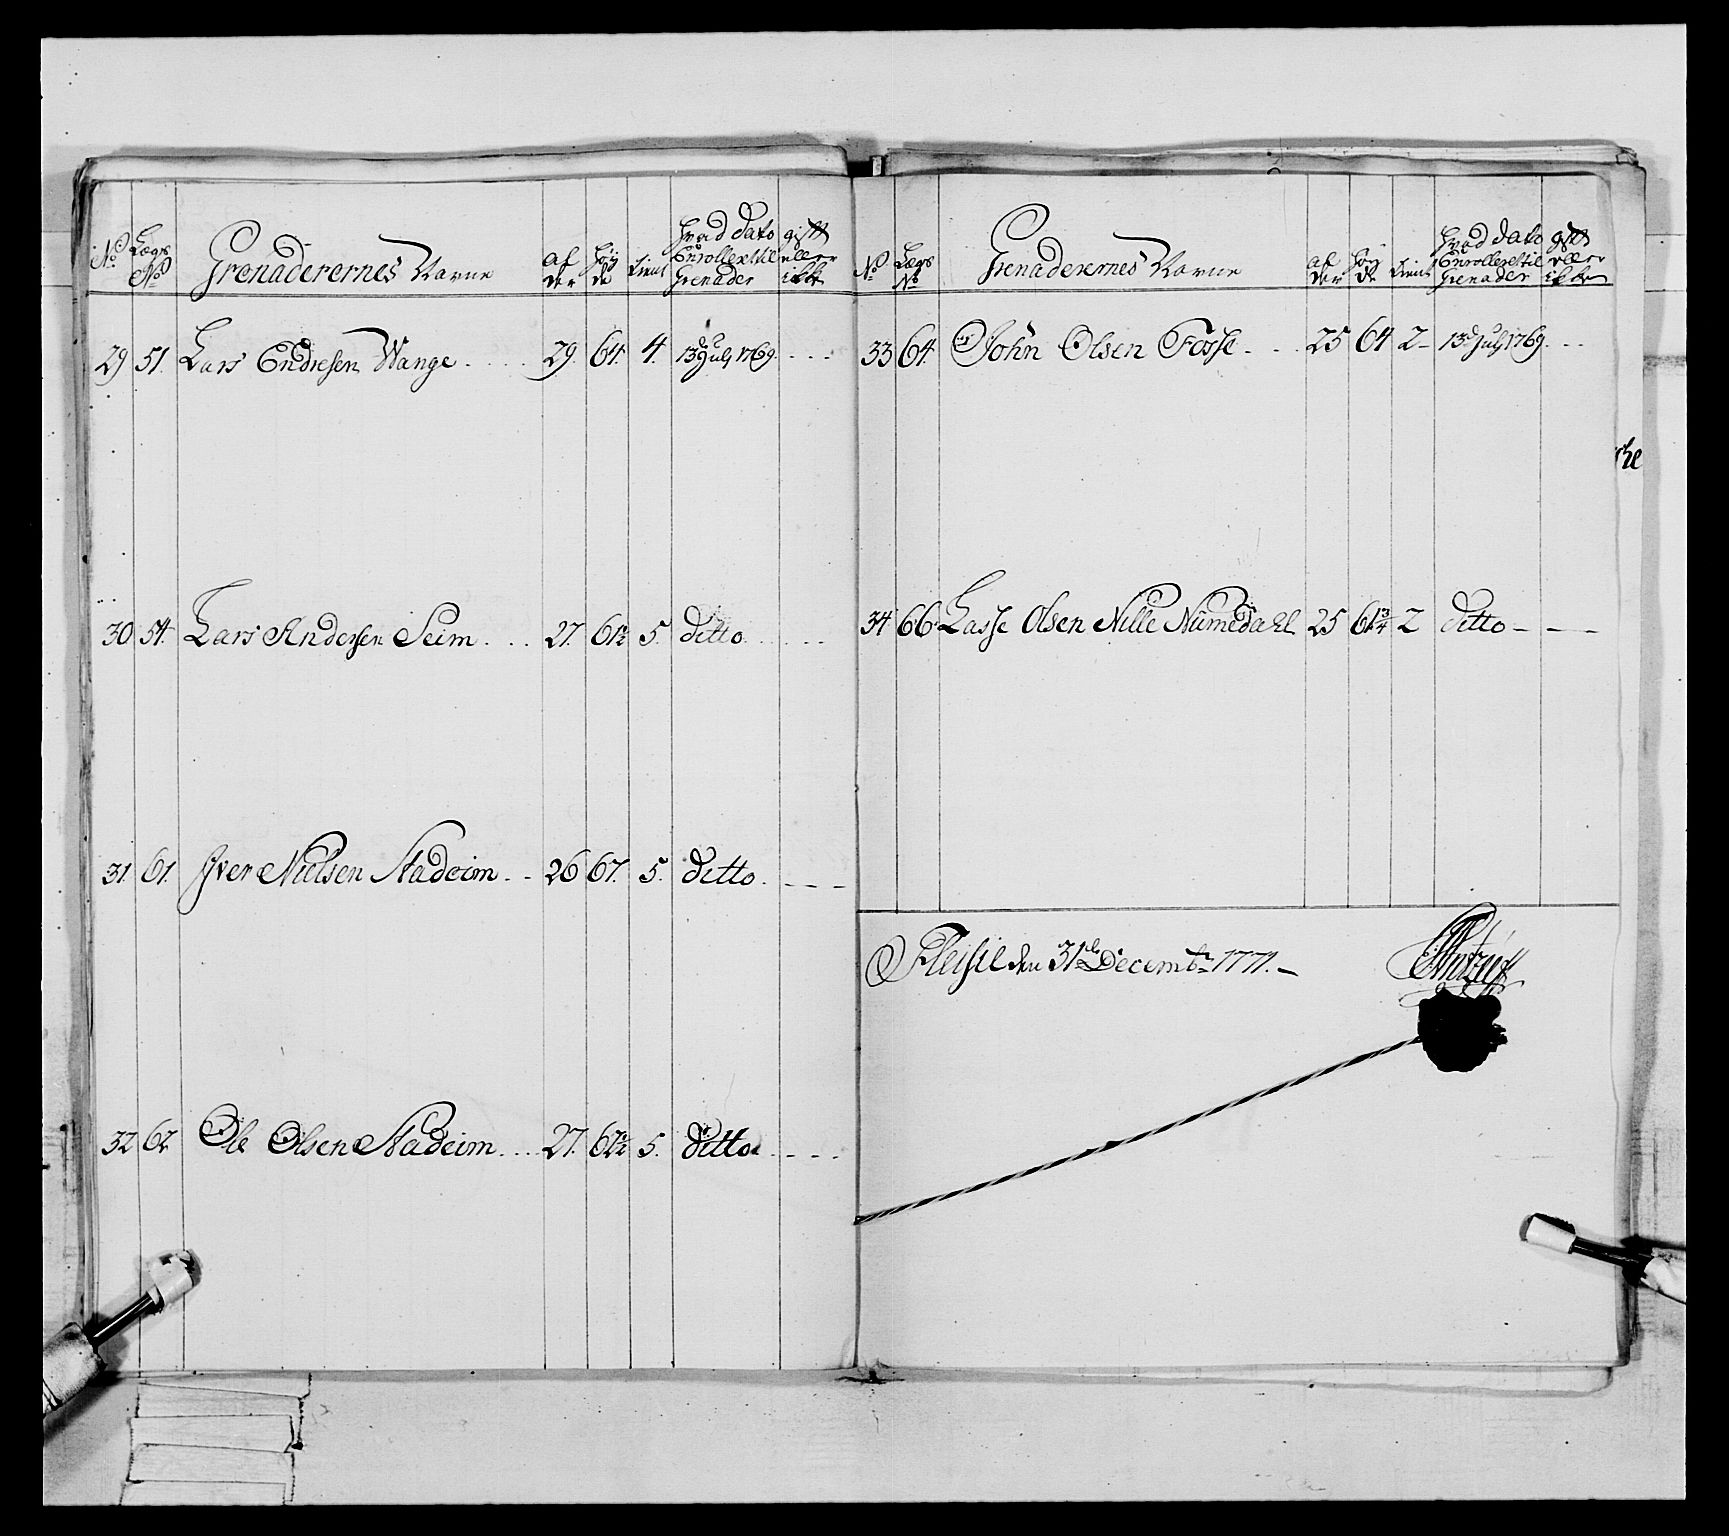 No Lægs No Grenaderernes Navne al der høy de tient hvad dato Enrolleret til Grenader gift eller ikke
29 51. Lars Endresen Wange 29. 64. 4. 13de July 1769.
30 54. Lars Andersen Seim 27. 61½ 5. ditto
31. 61. Iver Nielsen Stadeim 26 67. 5. ditto
32 62 Ole Olsen Stadeim 27. 67½ 5. ditto
No Lægs No Grenaderernes Navne al der høy de tient hvad dato Enrolleret til Grenader gift eller ikke
33 64. John Olsen Fosse 25 64 2 13de July 1769.
34 66. Lasse Olsen Nille Numedahl 25 61¾ 2 ditto
den 31te Decembr 1771.